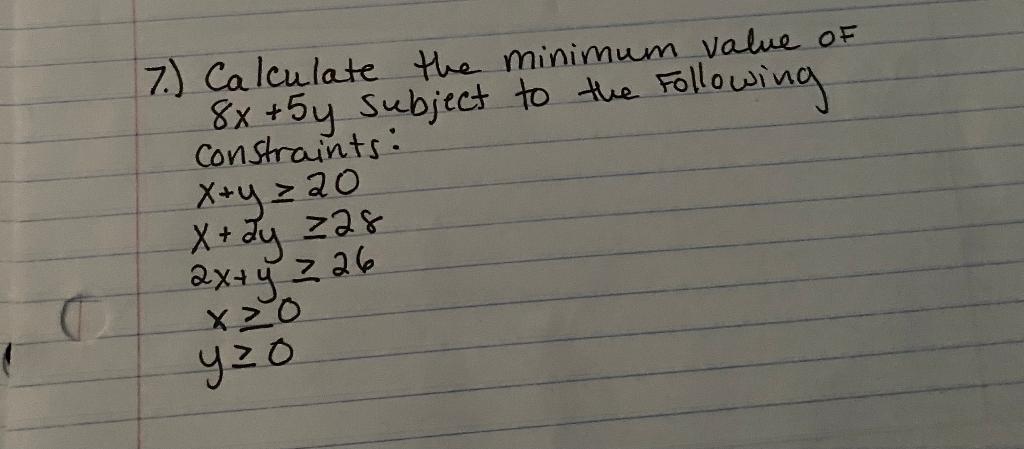 7.) Calculate the minimum value of
8x + 5y subject to the Following
constraints:
x+y ≥ 20
x + 2y ≥ 28
2x+y ≥ 26
x ≥ 0
y ≥ 0